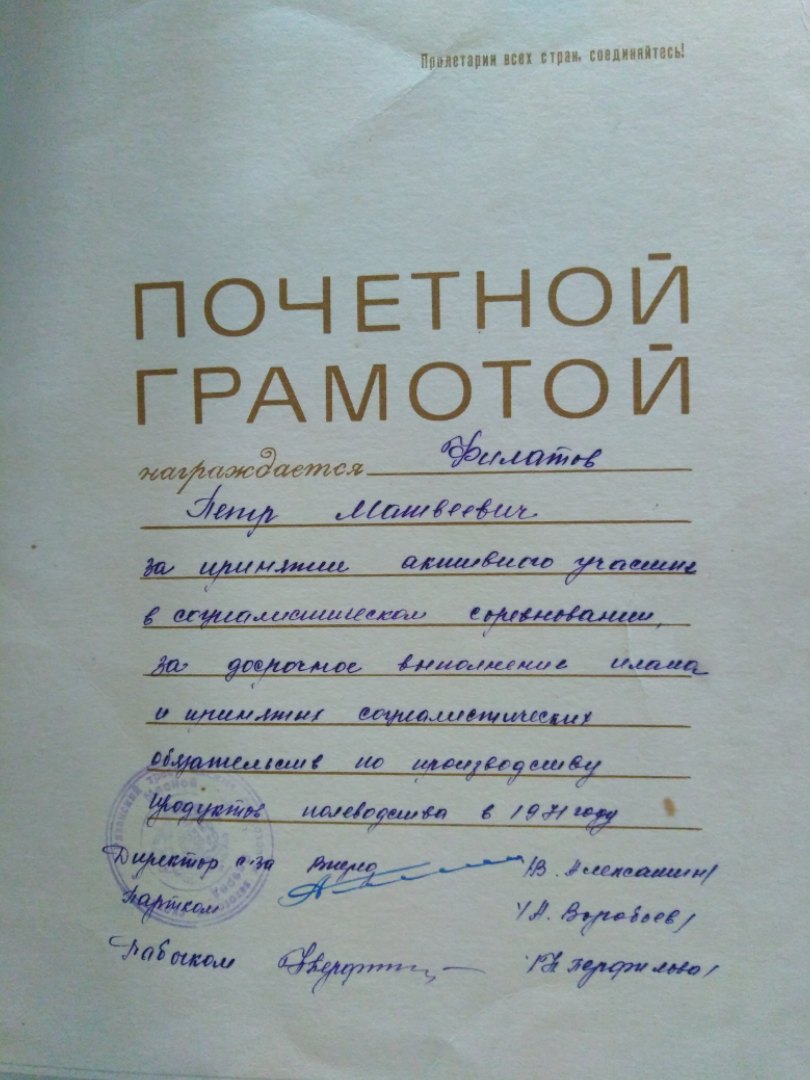 Пролетарии всех стран, соединяйтесь!
ПОЧЕТНОЙ
ГРАМОТОЙ
награждается Филатов
Петр Матвеевич
за принятии активного участия
в социалистическом соревновании,
за досрочное выполнение плана
и принятых социалистических
обязательств по производству
продуктов полеводства в 1971 году
Директор с-за Вперед /В. Алексашин/
Партком /А. Воробьев/
Рабочком /Н Перфильева/